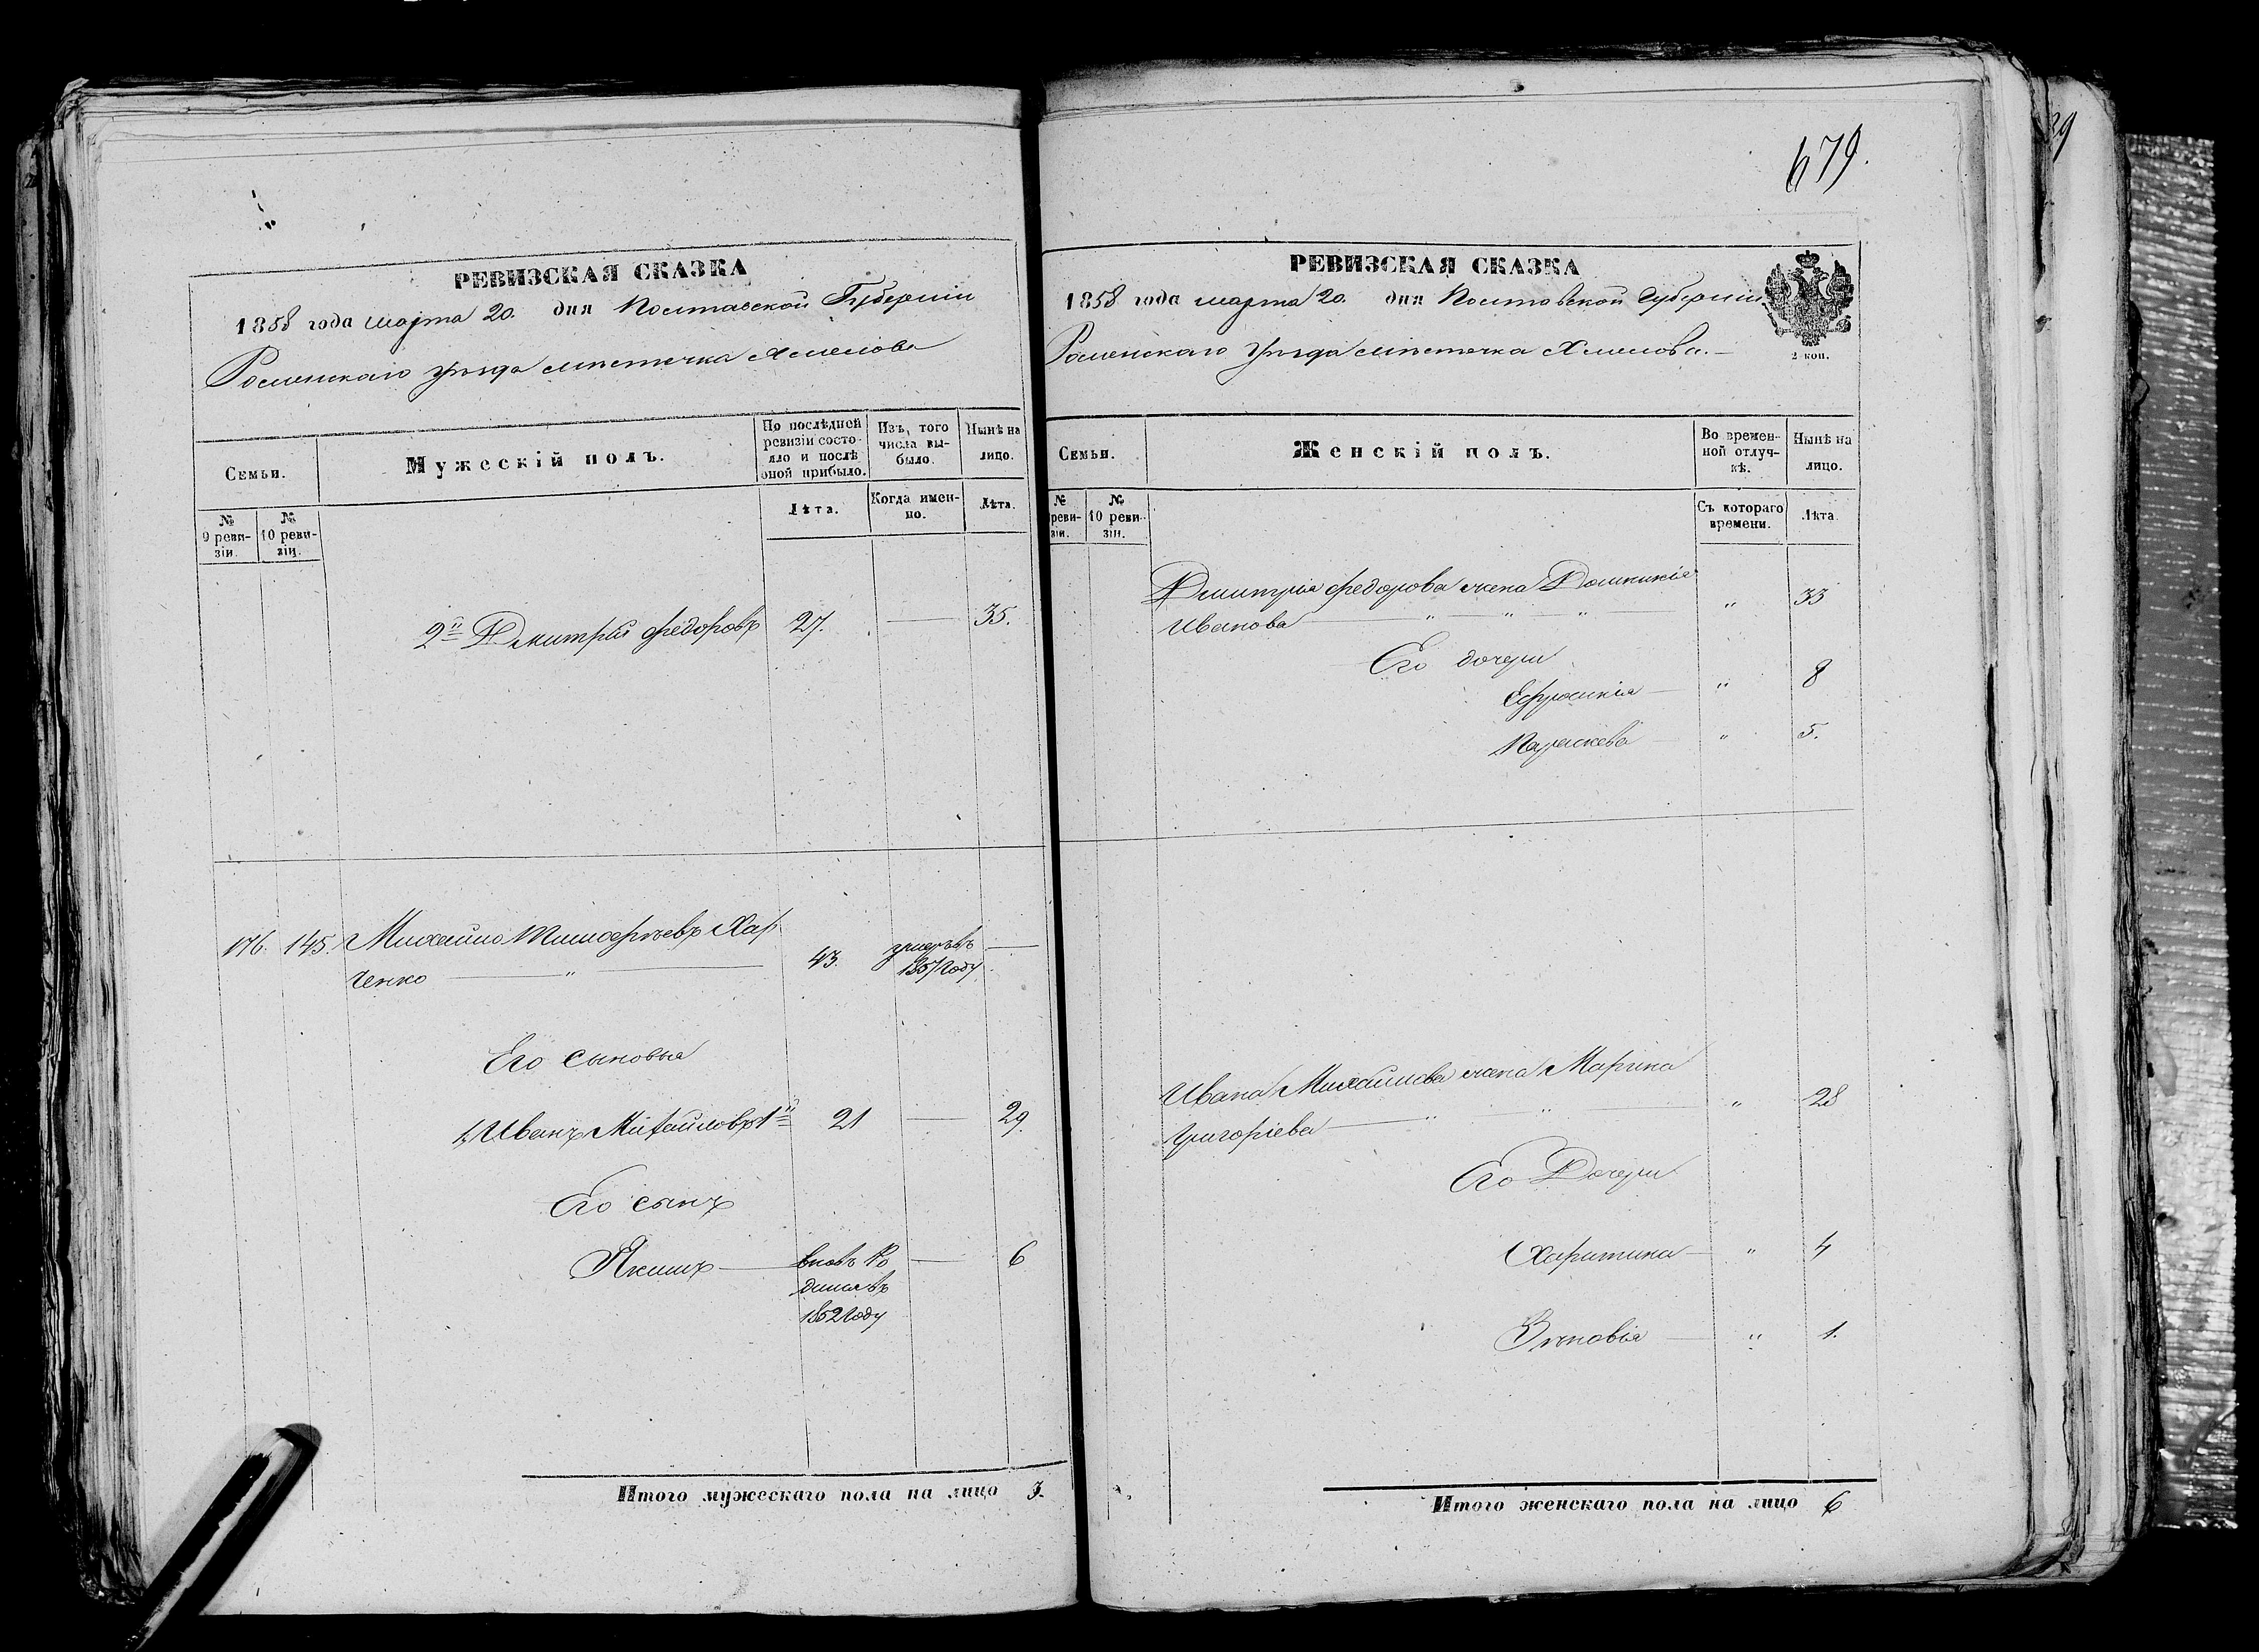 РЕВИЗСКАЯ СКАЗКА
1858 года марта 20. дня Полтавской Губерніи
Роменскаго уѣзда мѣстечка Хмелова
Семьи.
Мужескій полъ.
По послѣдней ревизіи состояло и послѣ оной прибыло.
Изъ того числа выбыло.
Нынѣ на лицо.
№ 9 ревизіи.
№ 10 ревизіи.
Лѣта.
Когда именно.
Лѣта.
2й Дмитрій Федоровъ 27. — 35.
176. 145. Михайло Тимофѣевъ Хар
ченко — " — 43. умеръ въ 1857 году —
Его сыновья
1, Иванъ Михайловъ 1й 21 — 29.
Его сынъ
Якимъ — вновь ро — 6
дился въ
1852 году
Итого мужескаго пола на лицо 3.
679.
РЕВИЗСКАЯ СКАЗКА
1858 года марта 20. дня Полтавской Губерніи
Роменскаго уѣзда мѣстечка Хмелова. —
2 коп.
Семьи.
Женскій полъ.
Во временной отлучкѣ.
Нынѣ на лицо.
№ ревизіи.
№ 10 ревизіи.
Съ котораго времени.
Лѣта.
Дмитрія Федорова жена Домникія
Иванова — " — " — " — " 33
Его дочери
Ефросинія — " 8
Параскева — " 5.
Ивана Михайлова жена Марина
Григоріева — " — " — " 28
Его Дочери
Харитина — " 4
Зѣновія — " 1.
Итого женскаго пола на лицо 6